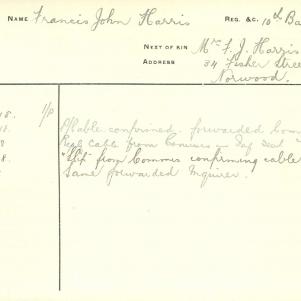 NAME Francis John Harris REG. &C. 10th Ba
NEXT OF KIN Mr F. J. Harris
ADDRESS 34 Fisher Stree
Norwood.
8. I/P cable confirmed, forwarded Com
Cable from Commrs
8. "Slip" from Commrs confirming cable
Same forwarded Inquirer.